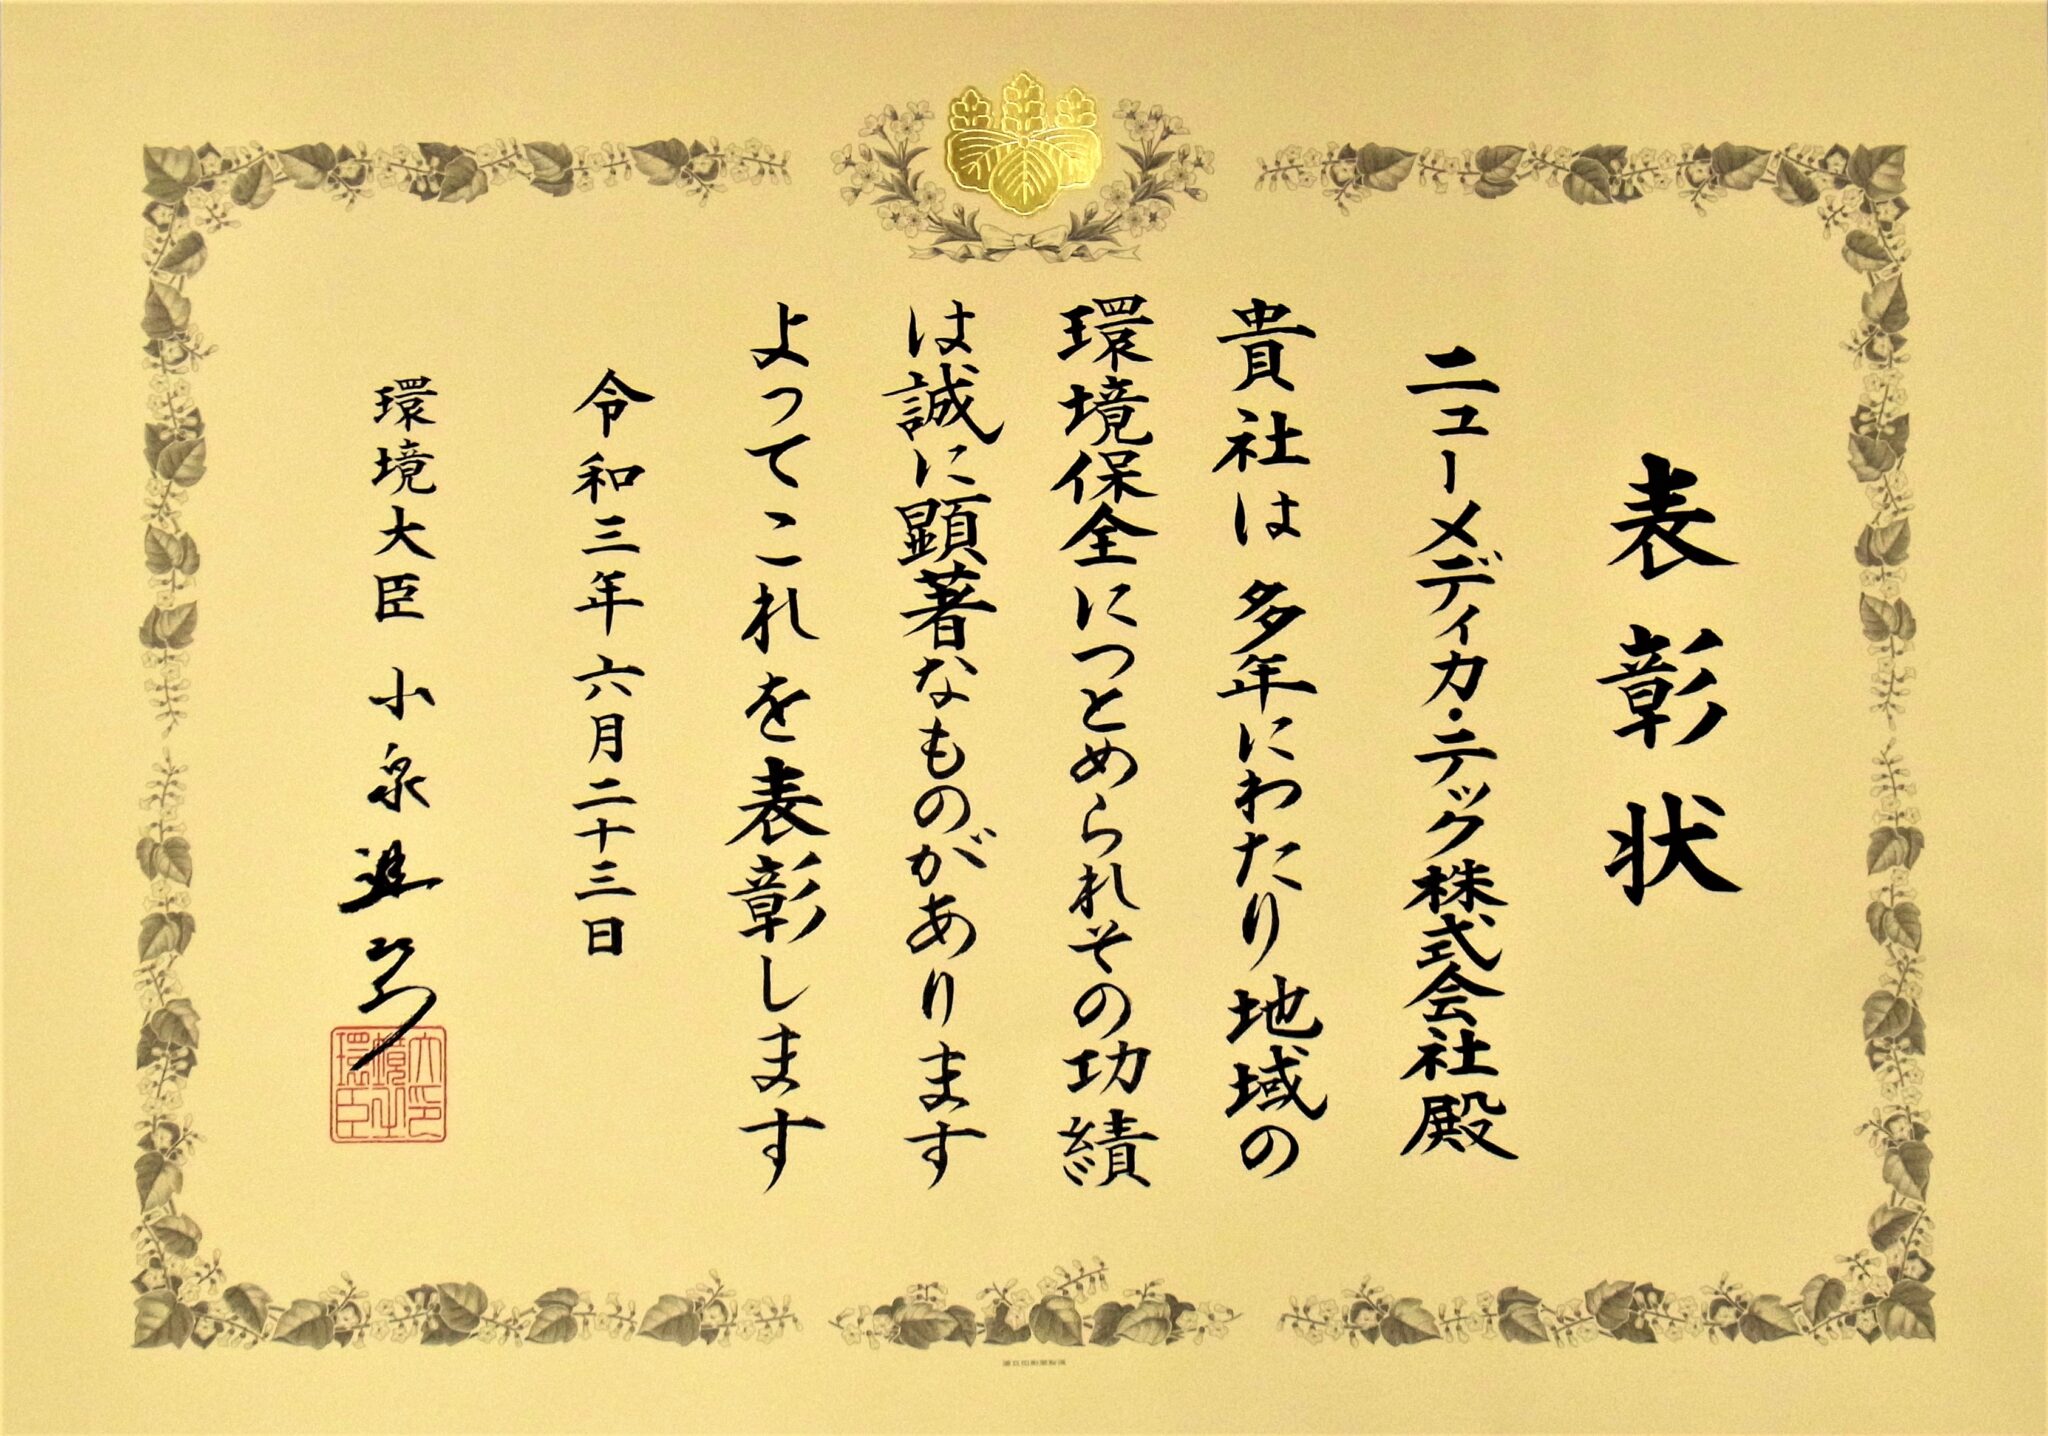 表彰状
ニューメディカ・テック株式会社殿
貴社は多年にわたり地域の
環境保全につとめられその功績
は誠に顕著なものがあります
よってこれを表彰します
令和三年六月二十三日
環境大臣 小泉進次郎